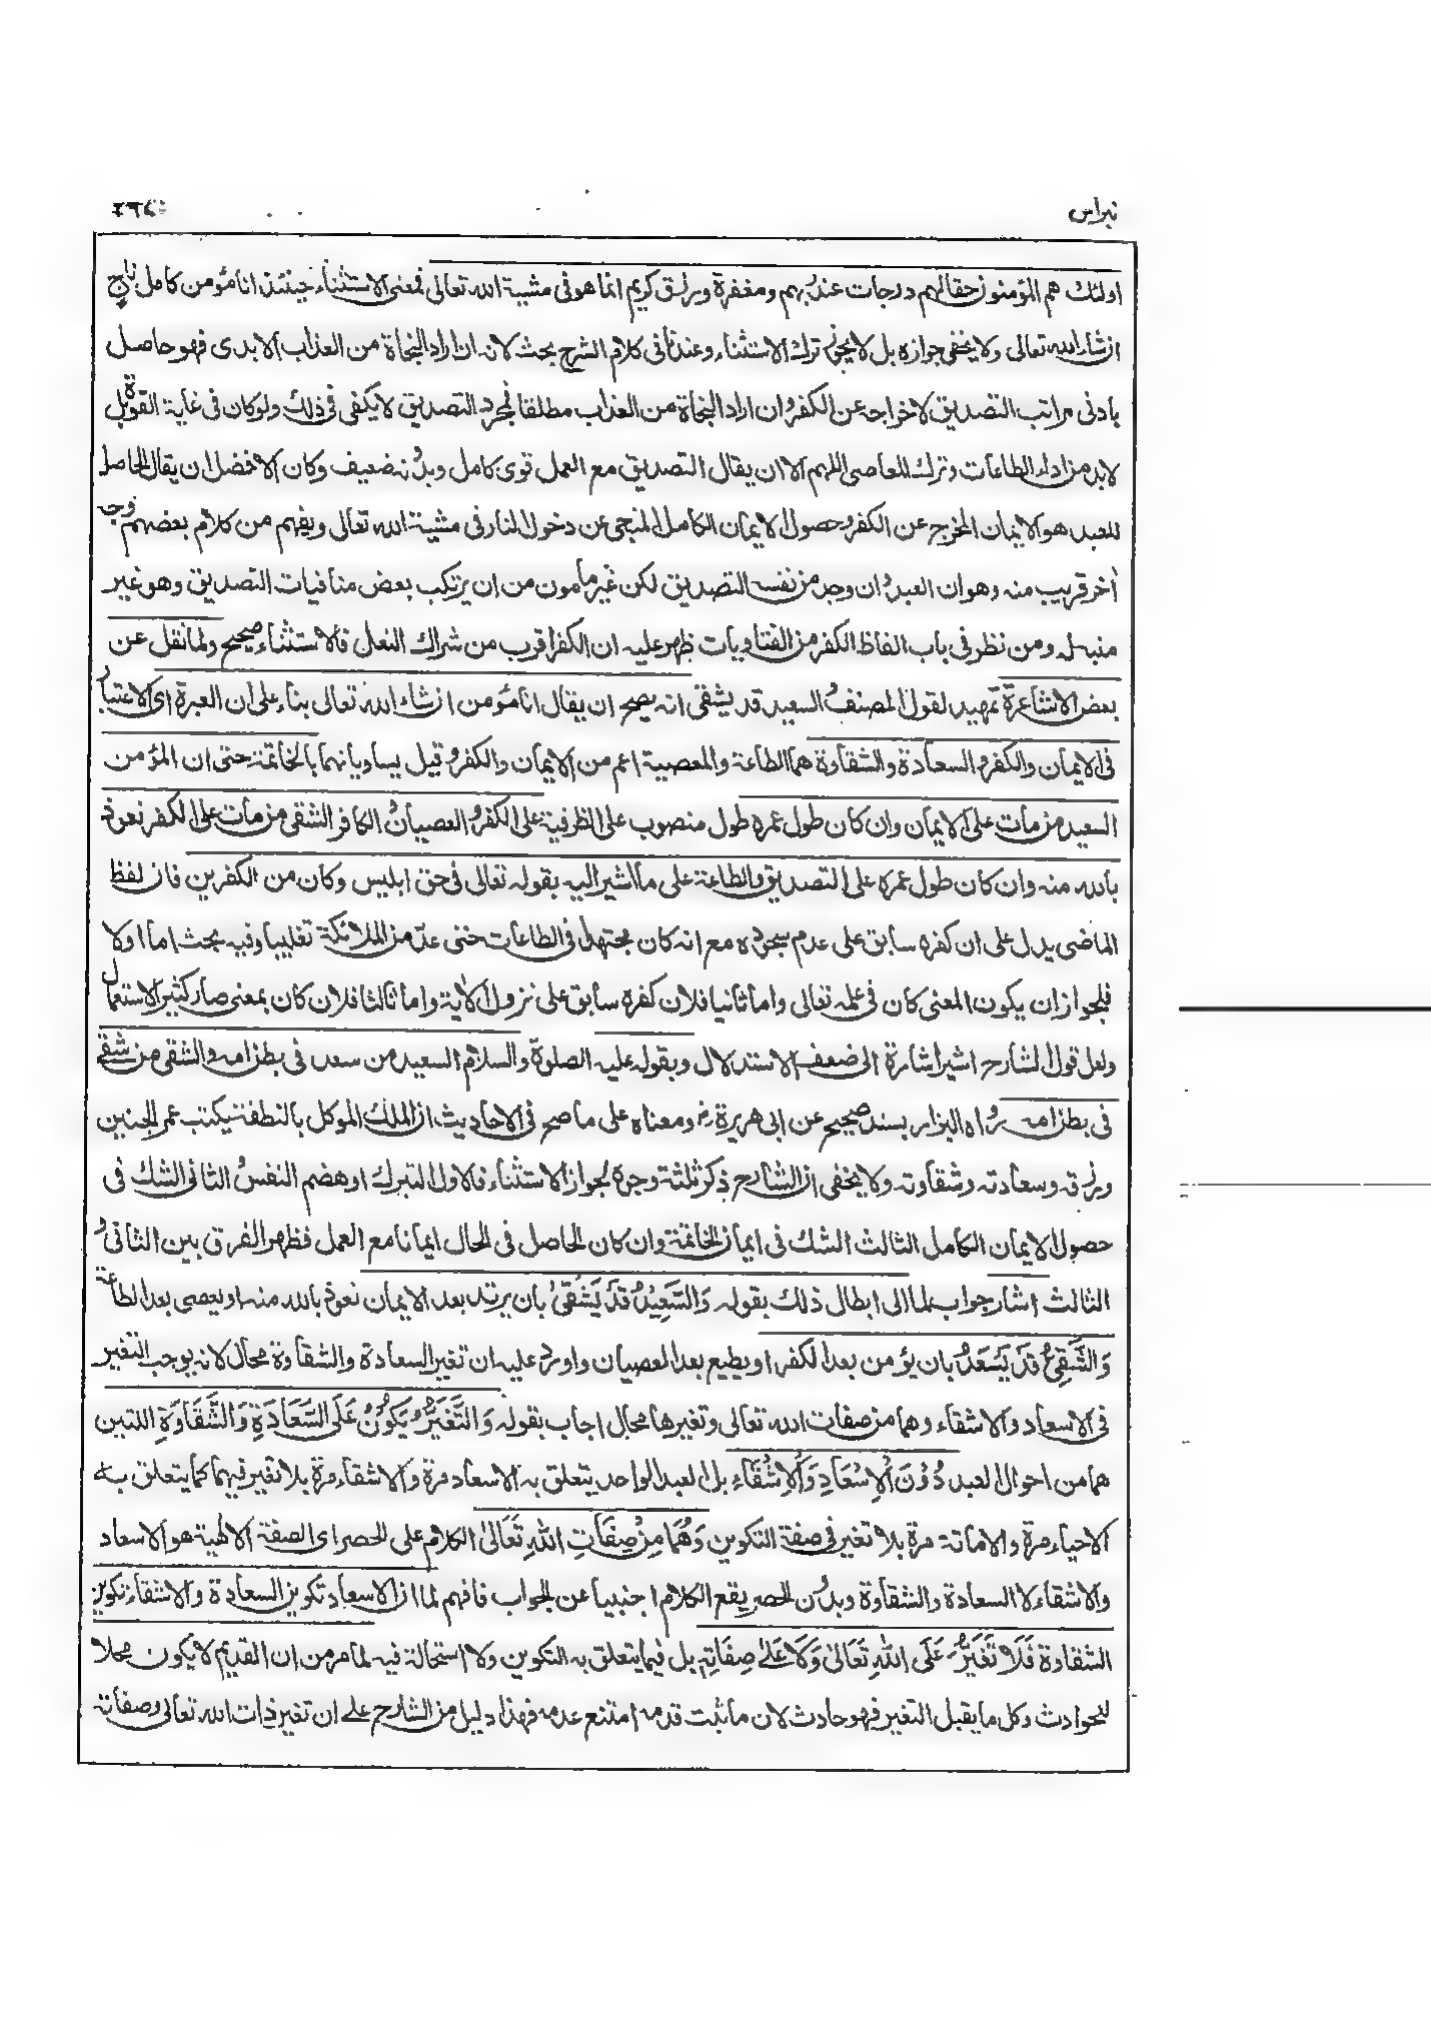 نبراس
اولئك هم المؤمنون حقا لهم درجات عند ربهم ومغفرة ورزق كريم انما هو فى مشية الله تعالى فمعنى الاستثناء حينئذ انا مؤمن كامل ناج
انشاء الله تعالى ولا يخفى جوازه بل لا يجوز ترك الاستثناء وعندنا فى كلام الشرح بحث لانه ان اراد النجاة من العذاب الابدى فهو حاصل
بادنى مراتب التصديق لاخراجه عن الكفر وان اراد النجاة من العذاب مطلقا فمجرد التصديق لا يكفى فى ذلك ولو كان فى غاية القوة بل
لابد من اداء الطاعات وترك المعاصى اللهم الا ان يقال التصديق مع العمل قوى كامل وبدونه ضعيف وكان الافضل ان يقال الحاصل
للعبد هو الايمان المخرج عن الكفر وحصول الايمان الكامل المنجى عن دخول النار فى مشية الله تعالى ويفهم من كلام بعضهم وجه
أخر قريب منه وهو ان العبد وان وجد من نفسه التصديق لكن غير مأمون من ان يرتكب بعض منافيات التصديق وهو غير
منبه له ومن نظر فى باب الفاظ الكفر من الفتاويات ظهر عليه ان الكفر اقرب من شراك النعل فالاستثناء صحيح ولما نقل عن
بعض الاشاعرة تمهيد لقول المصنف والسعيد قد يشقى انه يصح ان يقال انا مؤمن انشاء الله تعالى بناء على ان العبرة اى الاعتبار
فى الايمان والكفر والسعادة والشقاوة هما الطاعة والمعصية اعم من الايمان والكفر وقيل يساويانهما بالخاتمة حتى ان المؤمن
السعيد من مات على الايمان وان كان طول عمره طول منصوب على الظرفية على الكفر والعصيان وان الكافر الشقى من مات على الكفر نعوذ
بالله منه وان كان طول عمره على التصديق والطاعة على ما اشير اليه بقوله تعالى فى حق ابليس وكان من الكفرين فان لفظ
الماضى يدل على ان كفره سابق على عدم سجوده مع انه كان مجتهدا فى الطاعات حتى عد من الملائكة تغليبا وفيه بحث اما اولا
فلجواز ان يكون المعنى كان فى علمه تعالى واما ثانيا فلان كفره سابق على نزول الاية واما ثالثا فلان كان بمعنى صار كثير الاستعمال
ولعل قول الشارح اشير اشارة الى ضعف الاستدلال وبقوله عليه الصلوة والسلام السعيد من سعد فى بطن امه والشقى من شقى
فى بطن امه رواه البزار بسند صحيح عن ابى هريرة رض ومعناه على ما صح فى الاحاديث ان الملك الموكل بالنطفة يكتب عمر الجنين
ورزقه وسعادته وشقاوته ولا يخفى ان الشارح ذكر ثلثة وجوه لجواز الاستثناء فالاول التبرك او هضم النفس والثانى الشك فى
حصول الايمان الكامل الثالث الشك فى ايمان الخاتمة وان كان الحاصل فى الحال ايمانا مع العمل فظهر الفرق بين الثانى و
الثالث اشار جواب لما الى ابطال ذلك بقوله وَالسَّعِيْدُ قَدْ يَشْقٰى بان يرتد بعد الايمان نعوذ بالله منه او يعصى بعد الطاعة
وَالشَّقِىُّ قَدْ يَسْعَدُ بان يؤمن بعد الكفر او يطيع بعد المعصيان واورد عليه ان تغير السعادة والشقاوة محال لانه يوجب التغير
فى الاسعاد والاشقاء وهما من صفات الله تعالى وتغيرها محال اجاب بقوله وَالتَّغَيُّرُ يَكُوْنُ عَلَى السَّعَادَةِ وَالشَّقَاوَةِ اللتين
هما من احوال العبد دُوْنَ الْاِسْعَادِ وَالْاِشْقَاءِ بل العبد الواحد يتعلق به الاسعاد مرة والاشقاء مرة بلا تغير فيهما كما يتعلق به
الاحياء مرة والاماتة مرة بلا تغير فى صفة التكوين وَهُمَا مِنْ صِفَاتِ اللهِ تَعَالىٰ الكلام على الحصر اى الصفة الالهية هو الاسعاد
والاشقاء لا السعادة والشقاوة وبدون الحصر يقع الكلام اجنبيا عن الجواب فافهم لما ان الاسعاد تكوين السعادة والاشقاء تكوين
الشقاوة فَلَا تَغَيُّرَ عَلَى اللهِ تَعَالىٰ وَلَا عَلىٰ صِفَاتِهٖ بل فيما يتعلق به التكوين ولا استحالة فيه لما مر من ان القديم لا يكون محلا
للحوادث وكل ما يقبل التغير فهو حادث لان ما ثبت قدمه امتنع عدمه فهذا دليل من الشارح على ان تغير ذات الله تعالى وصفاته